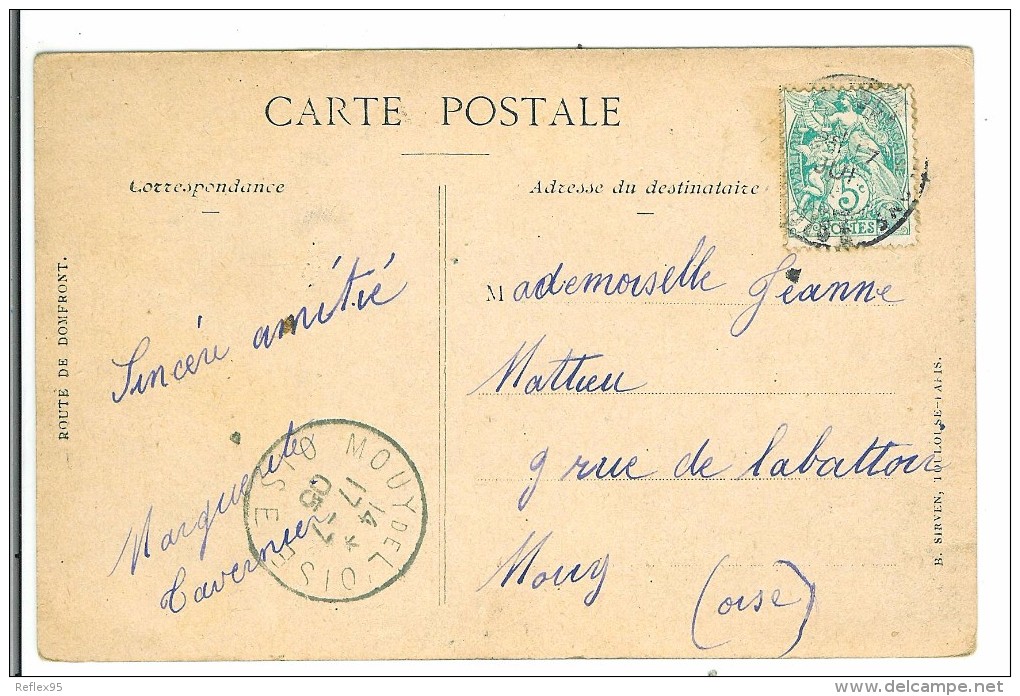 CARTE POSTALE
Correspondance
Adresse du destinataire
5c
POSTES
ROUTE DE DOMFRONT.
Sincère amitié
Marguerite
Tavernier
MOUY DEL'OISE
OISE
14
17 -7
05
Mademoiselle Jeanne
Mattieu
9 rue de labattoir
Mouy (oise)
B. SIRVEN, TOULOUSE-PARIS.
Reflex95
delcampe.net